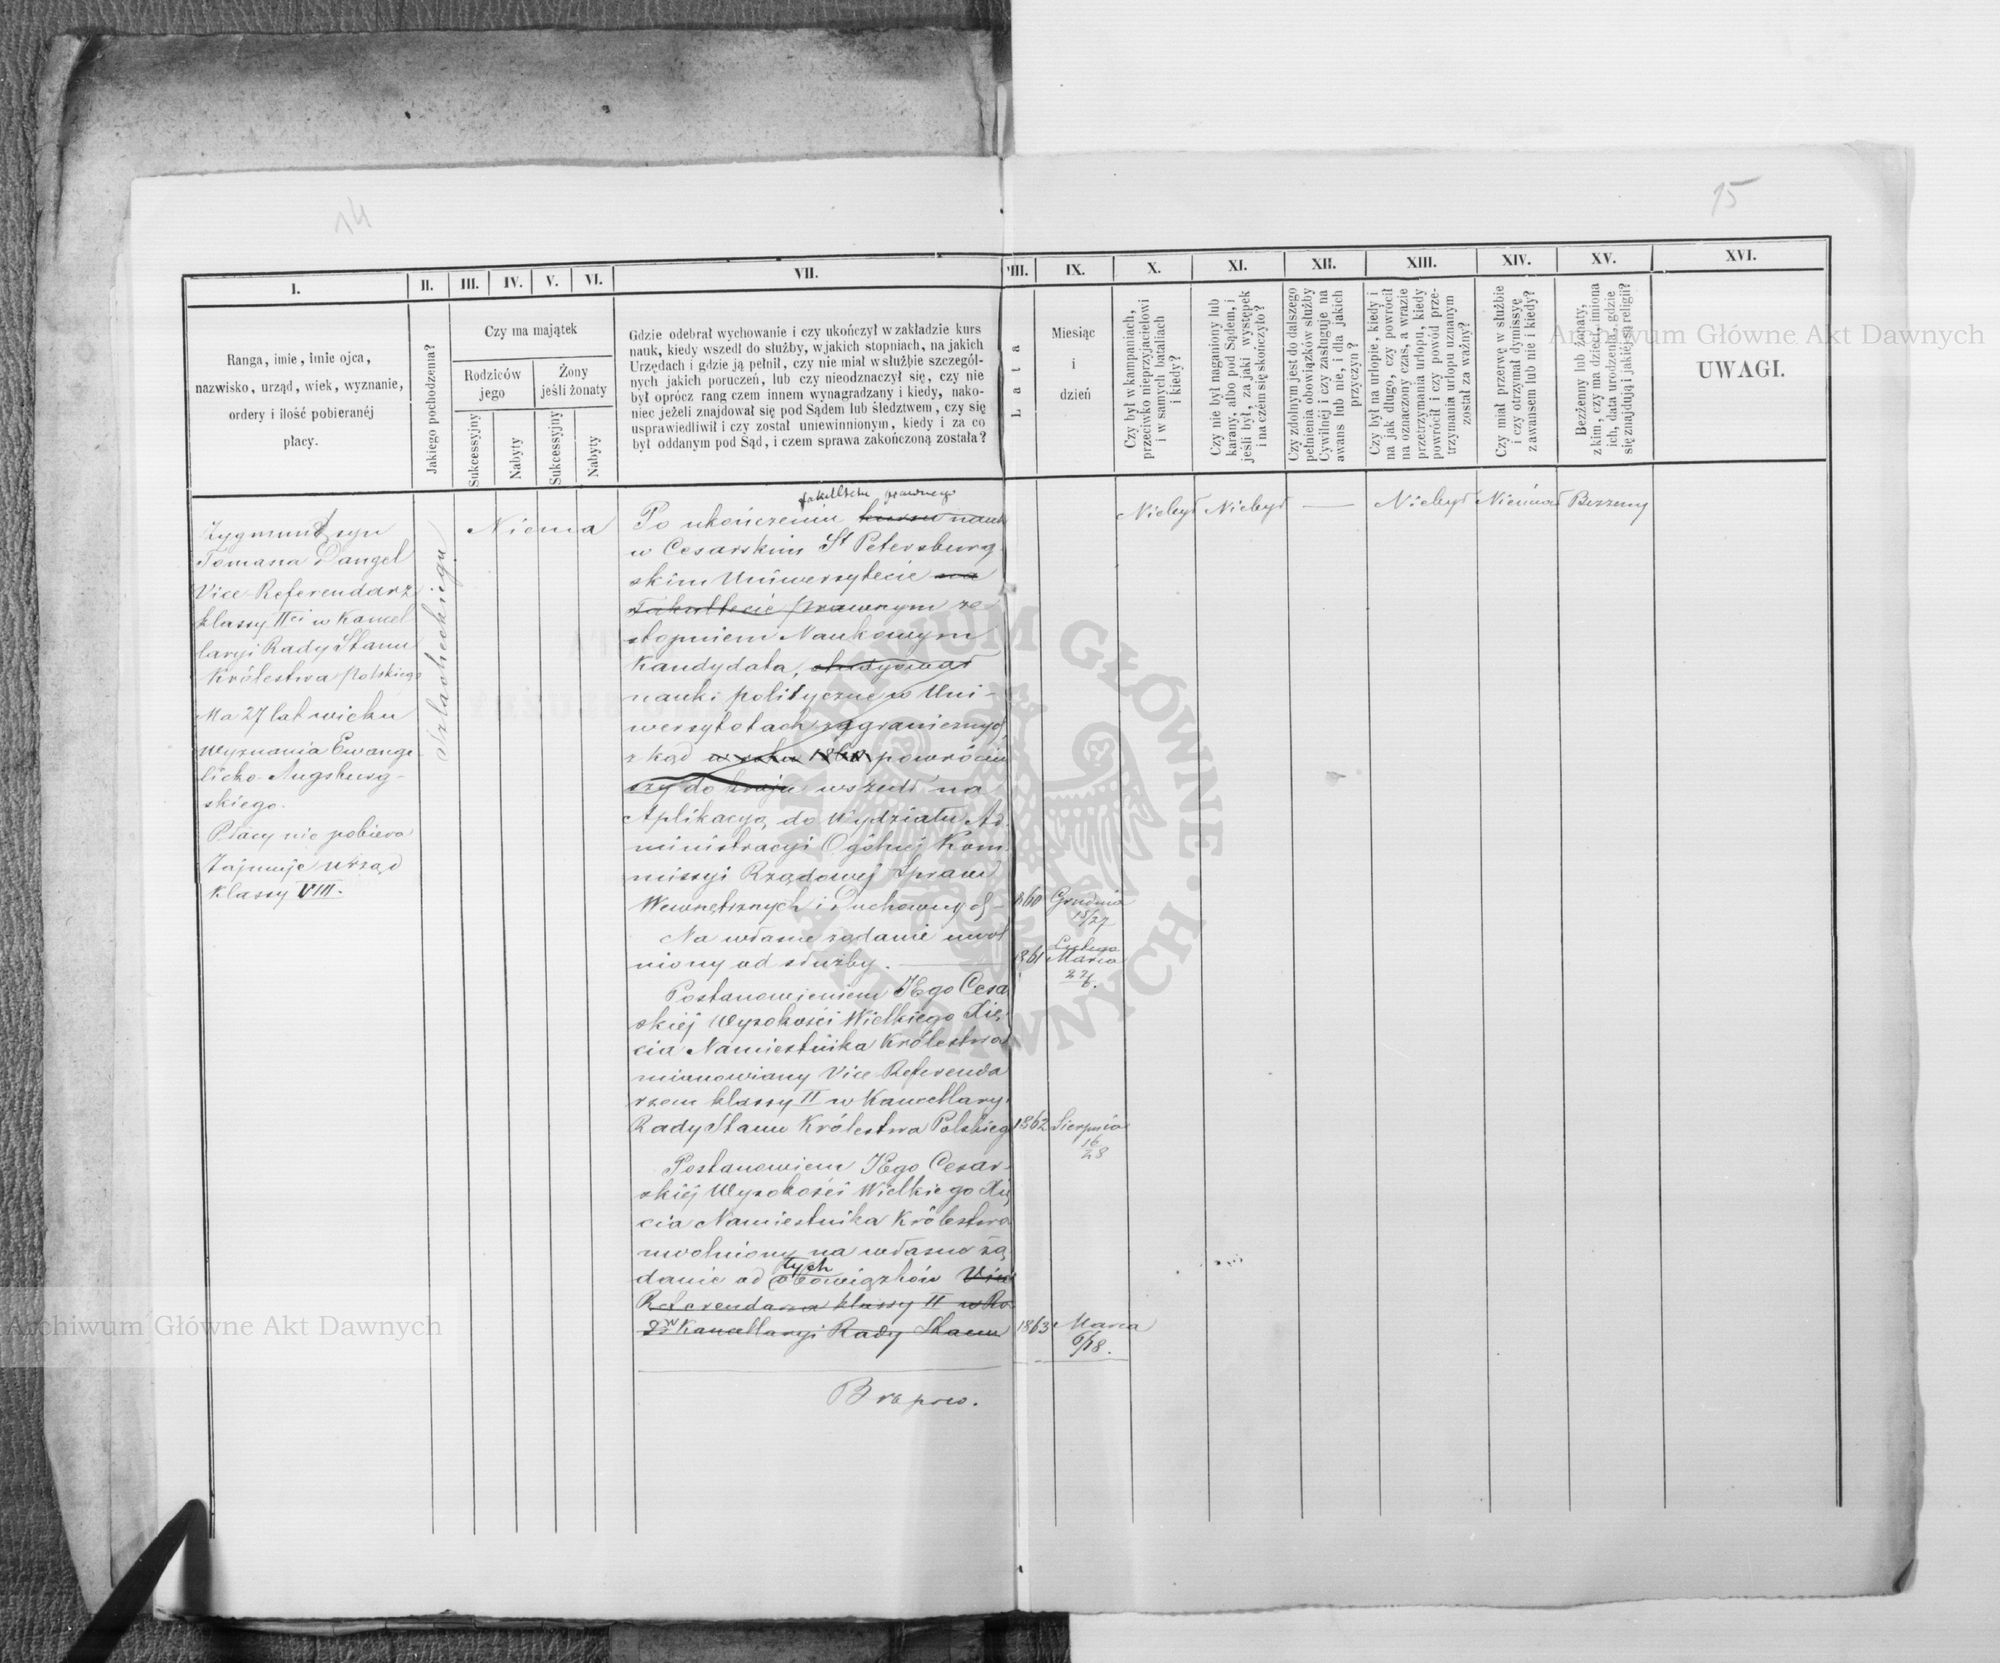 14
15
I.
II.
III.
IV.
V.
VI.
VII.
VIII.
IX.
X.
XI.
XII.
XIII.
XIV.
XV.
XVI.
Ranga, imie, imie ojca,
nazwisko, urząd, wiek, wyznanie,
ordery i ilość pobieranéj
płacy.
Jakiego pochodzenia?
Czy ma majątek
Rodziców
jego
Żony
jeśli żonaty
Sukcessyjny
Nabyty
Sukcessyjny
Nabyty
Gdzie odebrał wychowanie i czy ukończył w zakładzie kurs
nauk, kiedy wszedł do służby, w jakich stopniach, na jakich
Urzędach i gdzie ją pełnił, czy nie miał w służbie szczegól-
nych jakich poruczeń, lub czy nieodznaczył się, czy nie
był oprócz rang czem innem wynagradzany i kiedy, nako-
niec jeżeli znajdował się pod Sądem lub śledztwem, czy się
usprawiedliwił i czy został uniewinnionym, kiedy i za co
był oddanym pod Sąd, i czem sprawa zakończoną została?
Lata
Miesiąc
i
dzień
Czy był w kampaniach,
przeciwko nieprzyjacielowi
i w samych bataliach
i kiedy?
Czy nie był naganiony lub
karany, albo pod Sądem, i
jeśli był, za jaki występek
i na czem się skończyło?
Czy zdolnym jest do dalszego
pełnienia obowiązków służby
Cywilnéj i czy zasługuje na
awans lub nie, i dla jakich
przyczyn?
Czy był na urlopie, kiedy i
na jak długo, czy powrócił
na oznaczony czas, a w razie
przetrzymania urlopu, kiedy
powrócił i czy powód prze-
trzymania urlopu uznanym
został za ważny?
Czy miał przerwę w służbie
i czy otrzymał dymissyę
z awansem lub nie i kiedy?
Bezżenny lub żonaty,
z kim, czy ma dzieci, imiona
ich, data urodzenia, gdzie
się znajdują i jakiéj są religii?
UWAGI.
Zygmunt syn
Tomasza Dangel
Vice-Referendarz
klassy IIéj w Kancel
laryi Rady Stanu
Królestwa Polskiego
Ma 27 lat wieku
Wyznania Ewange-
licko-Augsburg-
skiego.
Płacy nie pobiera
Zajmuje urząd
klassy VIII.
Szlacheckiego
Niema
fakultetu prawnego
Po ukończeniu kursu nauk
w Cesarskim St Petersburg
skim Uniwersytecie na
Fakultecie prawnym ze
stopniem Naukowym
Kandydata, studyował
nauki polityczne w Uni-
wersytetach zagranicznych
z kąd w roku 1860 powróciw
szy do kraju wszedł na
Aplikacyą do Wydziału Ad
ministracyi Ogólnej Kom
missyi Rządowej Spraw
Wewnętrznych i Duchownych
1860 Grudnia
15/27
Na własne żądanie uwol
niony od służby.
1861 Lutego
Marca
22/6.
Postanowieniem JEgo Cesar
skiéj Wysokości Wielkiego Xię
cia Namiestnika Królestwa
mianowany Vice-Referenda
rzem klassy II w Kancellaryi
Rady Stanu Królestwa Polskiego
1862 Sierpnia
16
28
Postanowieniem JEgo Cesar-
skiéj Wysokości Wielkiego Xię
cia Namiestnika Królestwa
uwolniony na własne żą
danie od tych obowiązków Vice
Referendarza klassy II w
w Kancellaryi Rady Stanu
1863 Marca
6/18.
Niebył
Niebył
—
Niebył
Niemiał
Bezżenny
Archiwum Główne Akt Dawnych
Archiwum Główne Akt Dawnych
ARCHIWUM GŁÓWNE AKT DAWNYCH